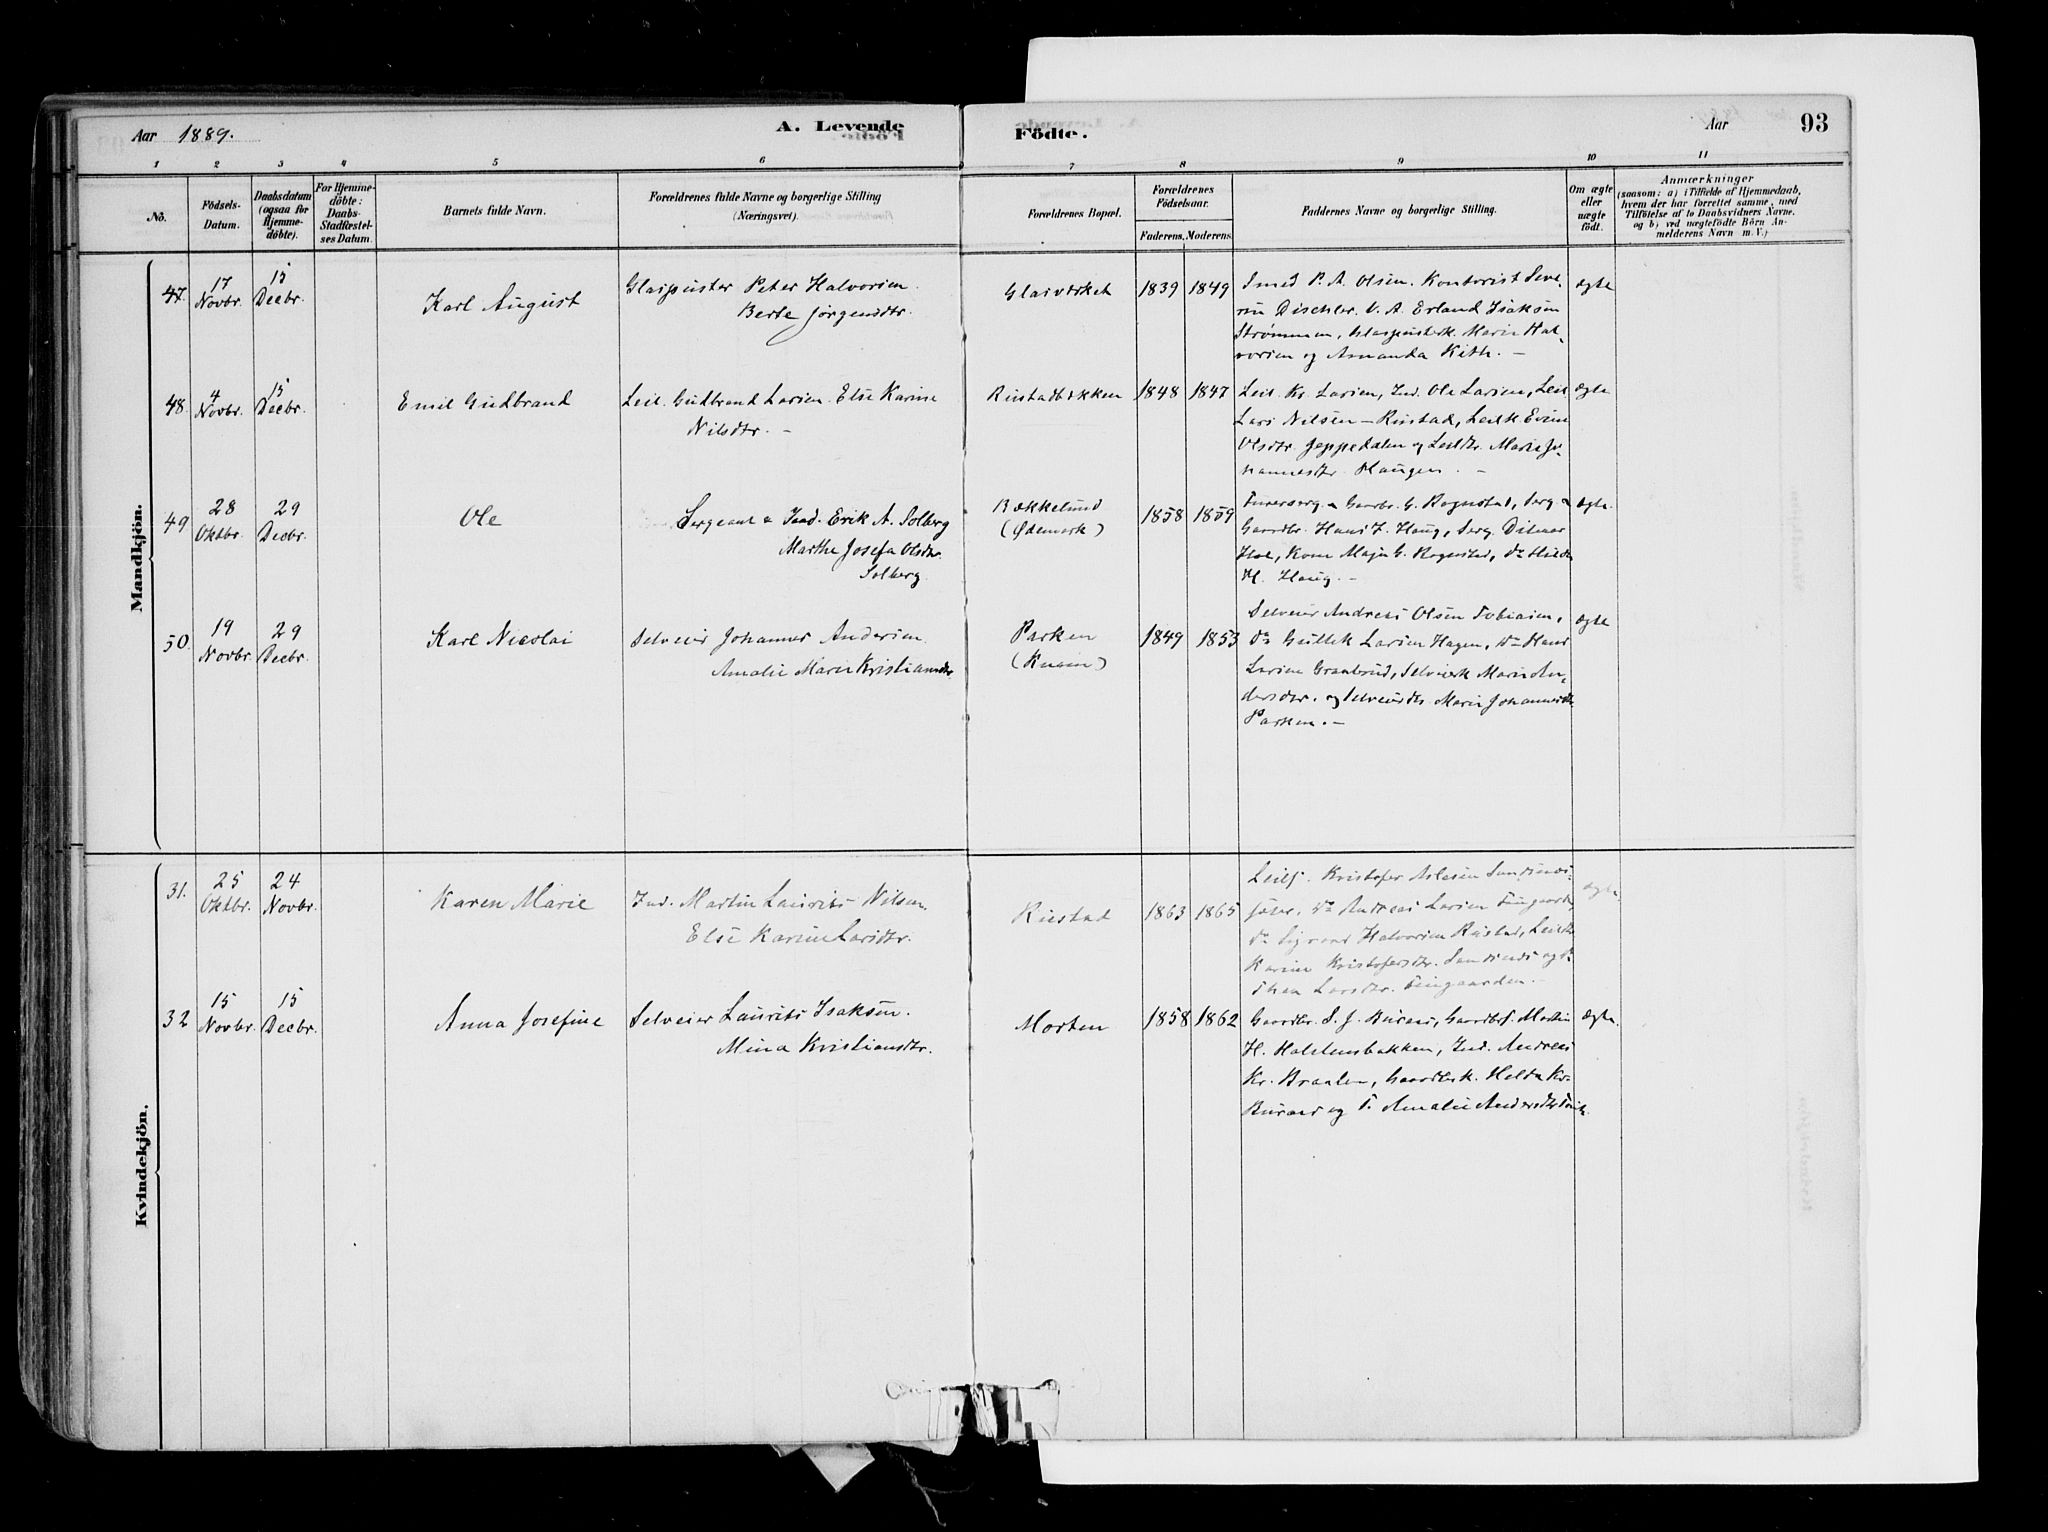 Aar 1889.
A. Levende
Födte.
Aar
93
1 2 3 4 5 6 7 8 9 10 11
No.
Födsels-
Datum.
Daabsdatum
(ogsaa for
Hjemme-
döbte).
For Hjemme-
döbte:
Daabs-
Stadfæstel-
ses Datum.
Barnets fulde Navn.
Forældrenes fulde Navne og borgerlige Stilling
(Næringsvei).
Forældrenes Bopæl.
Forældrenes
Födselsaar.
Faderens. Moderens.
Faddernes Navne og borgerlige Stilling.
Om ægte
eller
uægte
födt.
Anmærkninger
(saasom: a) i Tilfælde af Hjemmedaab,
hvem der har forrettet samme, med
Tilföielse af to Daabsvidners Navne.
og b) ved uægtefödte Börn An-
melderens Navn m. V.)
Mandkjön.
47.
17
Novbr.
15
Decbr.
Karl August
Glaspuster Peter Halvorsen.
Berte Jörgensdtr.
Glasværket
1839
1849
Smed P. A. Olsen. Kontorist Seve-
rin Dischler. V. A. Erland Isaksen
Strømmen, Glaspusterk. Marie Hal-
vorsen og Amanda Keth. —
ægte
48.
4
Novbr.
15
Decbr.
Emil Gudbrand
Leil. Gudbrand Larsen. Else Karine
Nilsdtr. —
Rustadbækken
1848
1847
Leil. Kr. Larsen, Ind. Ole Larsen, Leil.
Lars Nilsen — Rustad, Leilk. Evine
Olsdtr. Jeppedalen og Leildtr. Marie Jo-
hannesdtr. Haugen. —
ægte
49
28
Oktbr.
29
Decbr.
Ole
Sergeant & Ind. Erik A. Solberg
Marthe Josefa Olsdtr.
Solberg.
Bækkelund
(Ødemark)
1858
1859
Furersrg. & Gaardbr. G. Rognstad, Serg. &
Gaardbr. Hans J. Haug, Serg. Ditmar
Hoel, Kone Maja G. Rognstad, do Hulda
H. Haug. —
ægte.
50.
19
Novbr.
29
Decbr.
Karl Nicolai
Selveier Johannes Andersen.
Amalie Marie Kristiansdtr.
Parken
1849
1853
Selveier Andreas Olsen Tobiasen,
do Gullek Larsen Hagen, do Hans
Larsen Granbrud, Selveierk. Marie An-
dersdtr. og Selveierdtr. Marie Johannesdtr.
Parken. —
ægte
Kvindekjön.
31.
25
Oktbr.
24
Novbr.
Karen Marie
Ind. Martin Laurits Nilsen.
Else Karine Larsdtr.
Rustad
1863
1865
Leilf. Kristofer Aslesen
do Andreas Larsen
do Sigvard Halvorsen Rustad,
Karine Kristofersdtr.
thea Larsdtr.
ægte
32
15
Novbr.
15
Decbr.
Anna Josefine
Selveier Laurits Isaksen.
Mina Kristiansdtr.
Morten
1858
1862
Gaardbr. S. J. Buraas, Gaardbrf. Martin
H. Holstensbakken, Ind. Andreas
Kr. Braaten, Gaardbrk. Helda Kr.
Buraas og P. Amalie Andersdtr.
ægte.